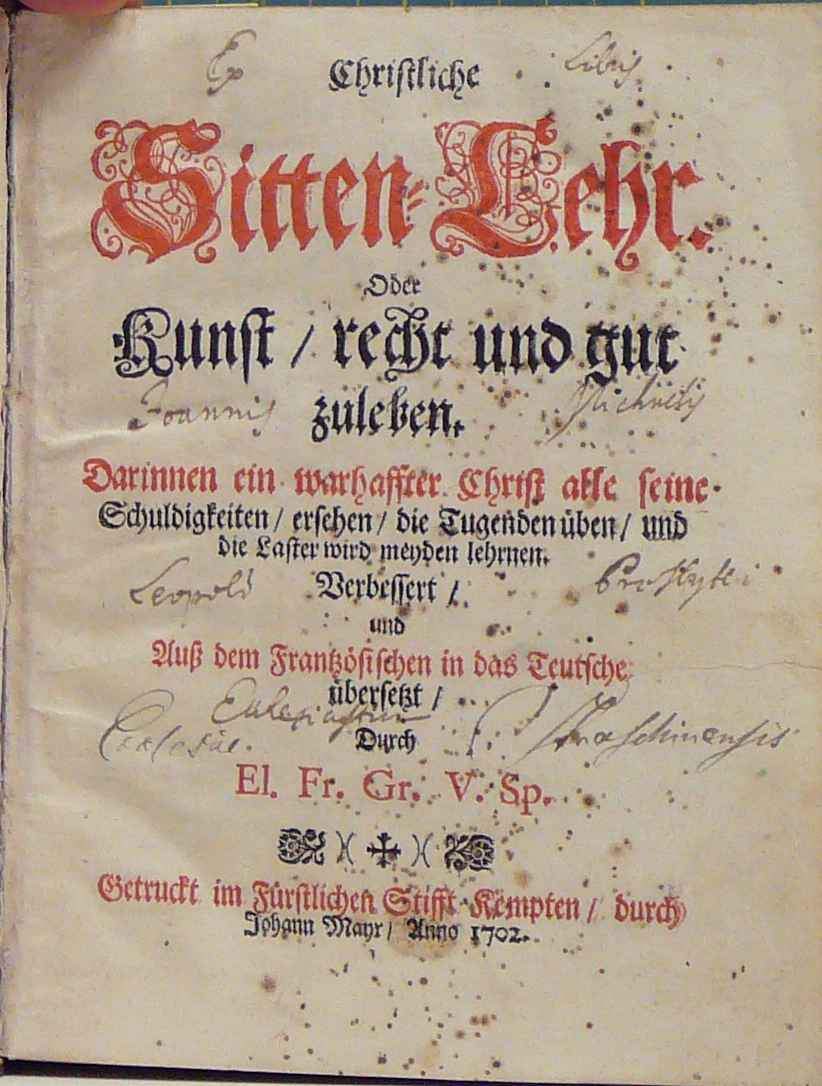 Ex Libris
Christliche
Sitten-Lehr.
Oder
Kunst / recht und gut
zuleben.
Joannis Michaelis
Darinnen ein warhaffter Christ alle seine
Schuldigkeiten / ersehen / die Tugenden üben / und
die Laster wird meyden lehrnen.
Leopold Presbyteri
Verbessert /
und
Auß dem Frantzösischen in das Teutsche
übersetzt /
Durch
Ecclesiae
El. Fr. Gr. V. Sp.
)( ✠ )(
Getruckt im Fürstlichen Stifft Kempten / durch
Johann Mayr / Anno 1702.